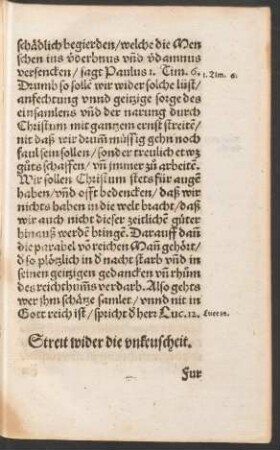 schådlich begierden/welche die Men
schen ins võderbnus vnd võdamnus
versencken/ sagt Paulus 1. Tim. 6. 1. Tim. 6.
Drumb so sollē wir wider solche lüst/
anfechtung vnnd geitzige sorge des
einsamlens vnd der narung durch
Christum mit gantzem ernst streitē/
nit daß wir drum̄ müssig gehn noch
faul sein sollen/ sonder treulich etwz
gůts schaffen/ vn̄ immer zů arbeitē.
Wir sollen Christum stets für augē
haben/ vnd offt bedencken/ daß wir
nichts haben in die welt bracht/ daß
wir auch nicht dieser zeitlichē güter
hinauß werdē bringē. Darauff dan̄
die parabel vō reichen Man̄ gehört/
d so plötzlich in d nacht starb vnd in
seinen geitzigen gedancken vn̄ rhům
des reichthum̄s verdarb. Also gehts
wer ihm schåtze samlet/ vnnd nit in
Gott reich ist/ spricht d herr Luc. 12. Luce 12.
Streit wider die vnkeuscheit.
Fur